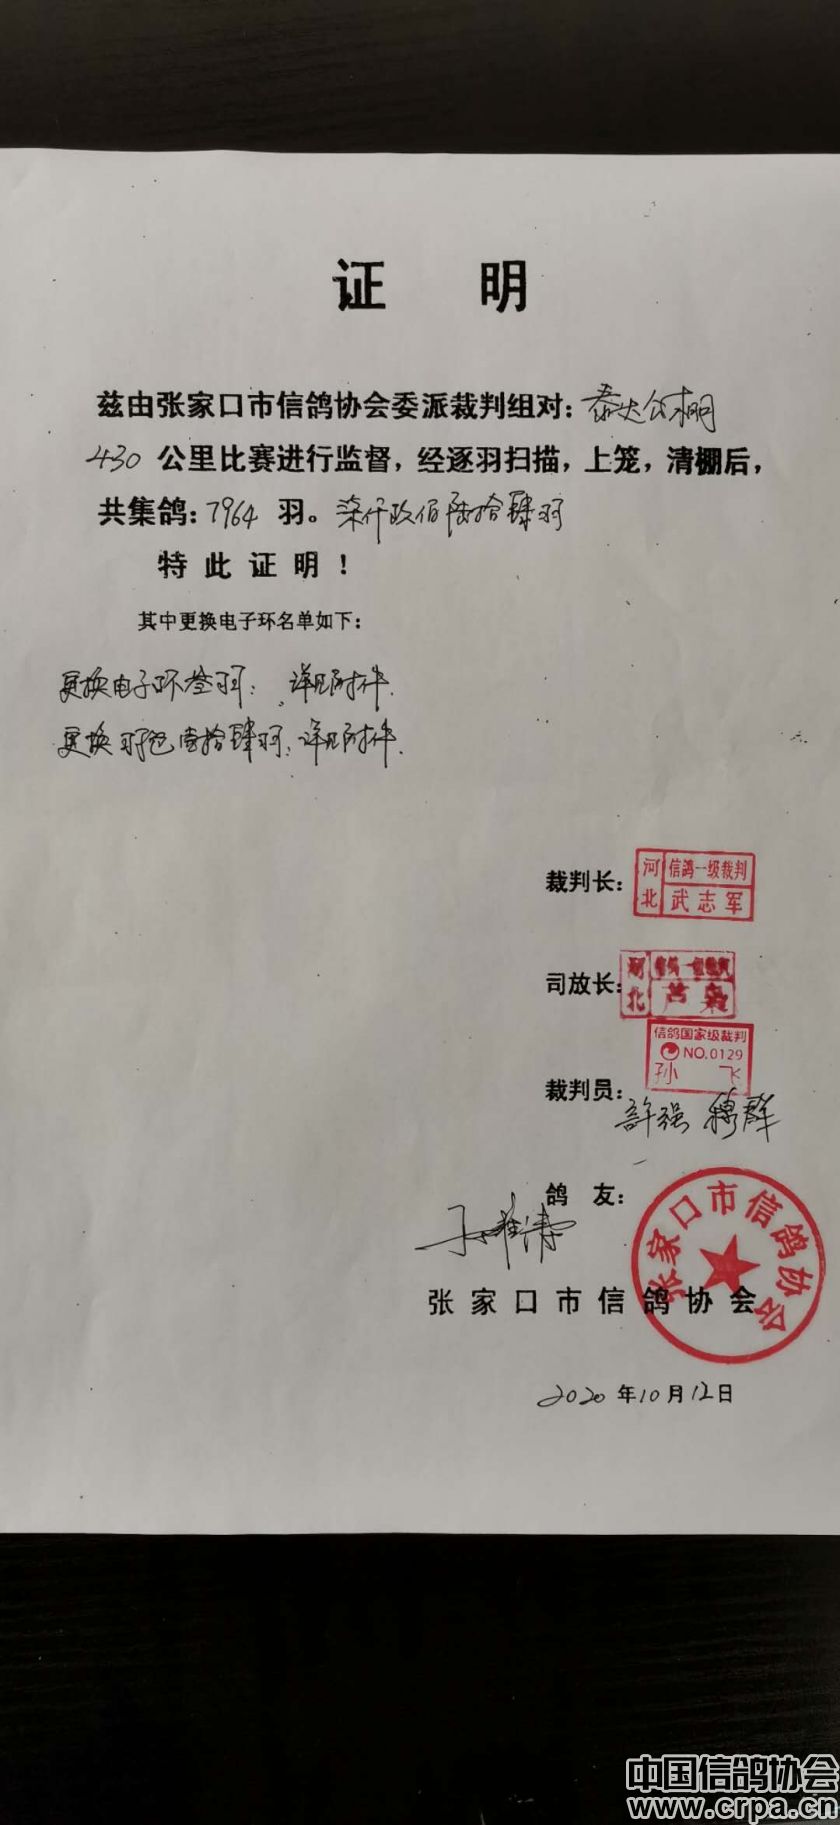 证 明
兹由张家口市信鸽协会委派裁判组对：泰达公棚
430 公里比赛进行监督，经逐羽扫描，上笼，清棚后，
共集鸽：7964 羽。柒仟玖佰陆拾肆羽
特此证明！
其中更换电子环名单如下：
更换电子环叁羽：详见附件.
更换羽色壹拾肆羽：详见附件.
裁判长：
河北 信鸽一级裁判
武志军
司放长：
河北
信鸽国家级裁判
NO.0129
孙飞
裁判员：
許强 穆群
鸽 友：
张家口市信鸽协会
张家口市信鸽协会
2020年10月12日
中国信鸽协会
www.crpa.cn